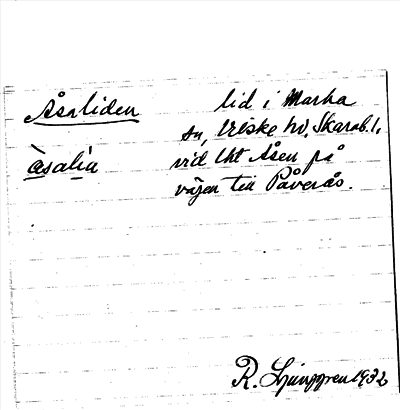 Åsaliden lid i Marka
sn, Vilske hd. Skarab. l.
àsalìa vid Uht Åsen på
vägen till Påverås.
R. Ljunggren 1932